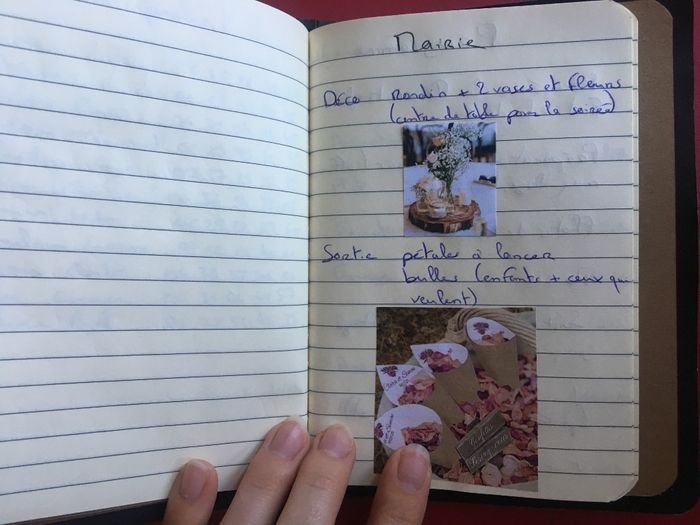 Mairie
Déco Rondin + 2 vases et fleurs
(centre de table pour la soirée)
Sortie pétales à lancer
bulles (enfants + ceux qui
veulent)